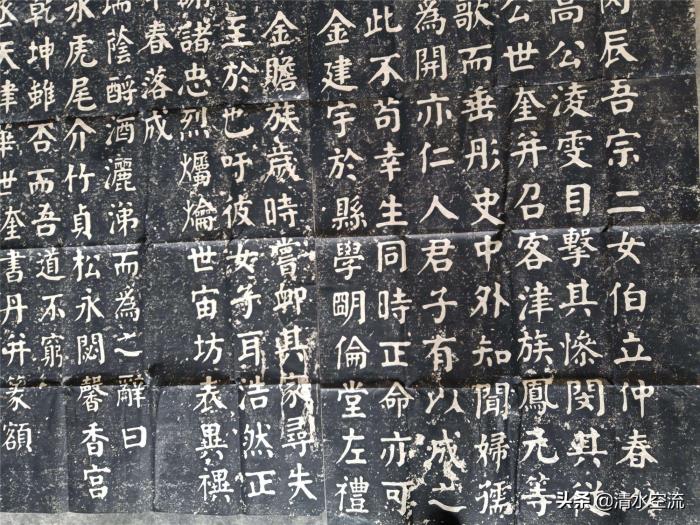 辰吾宗二女伯立仲春
高公凌雯目擊其慘閔其從
公世奎并召客津族鳳元等
歌而垂彤史中外知聞婦孺
為開亦仁人君子有以成之
此不苟幸生同時正命亦可
金建宇於縣學明倫堂左禮
金贍族歲時嘗卹其家尋失
至於也吁彼女子耳浩然正
諸忠烈爥爚世宙坊表異禩
春落成
瑞陰酹酒灑涕而為之辭曰
永虎尾介竹貞松永閟馨香宮
乾坤雖否而吾道不窮
天津華世奎書丹并篆額
头条@清水空流